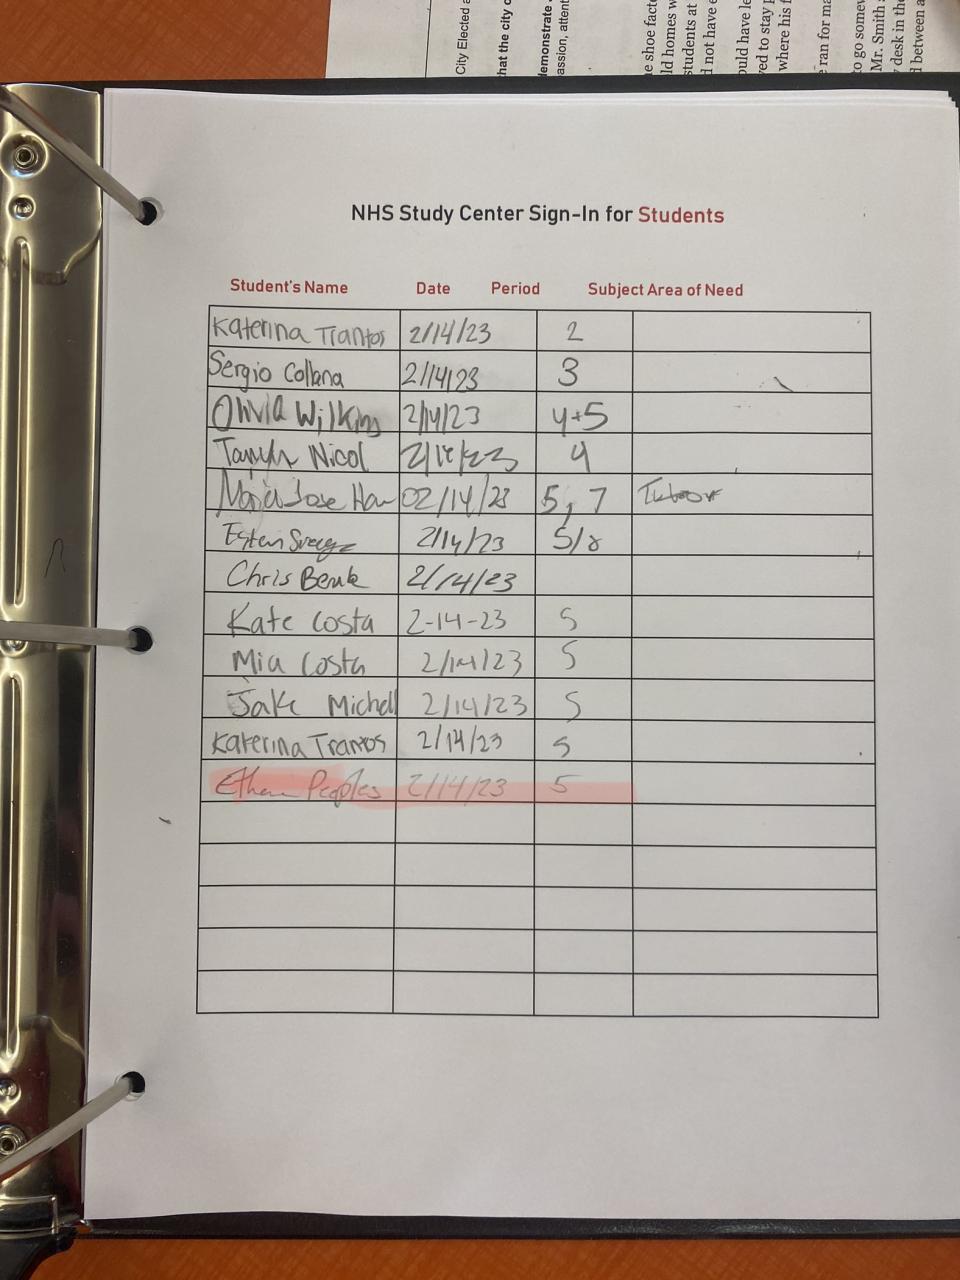 City Elected a
hat the city o
demonstrate
assion, attent
e shoe facto
ld homes w
students at
d not have e
ould have le
ved to stay p
where his f
ran for ma
to go somew
Mr. Smith s
desk in the
d between a
NHS Study Center Sign-In for Students
Student's Name Date Period Subject Area of Need
Katerina Trantos 2/14/23 2
Sergio Collana 2/14/23 3
Olivia Wilkins 2/14/23 4+5
Nicol 4
Jose 02/14/23 5, 7 Tutor
2/14/23 5/8
Chris 2/14/23
Kate Costa 2-14-23 5
Mia Costa 2/14/23 5
Jake Michell 2/14/23 5
Katerina Trantos 2/14/23 5
Ethan Peoples 2/14/23 5